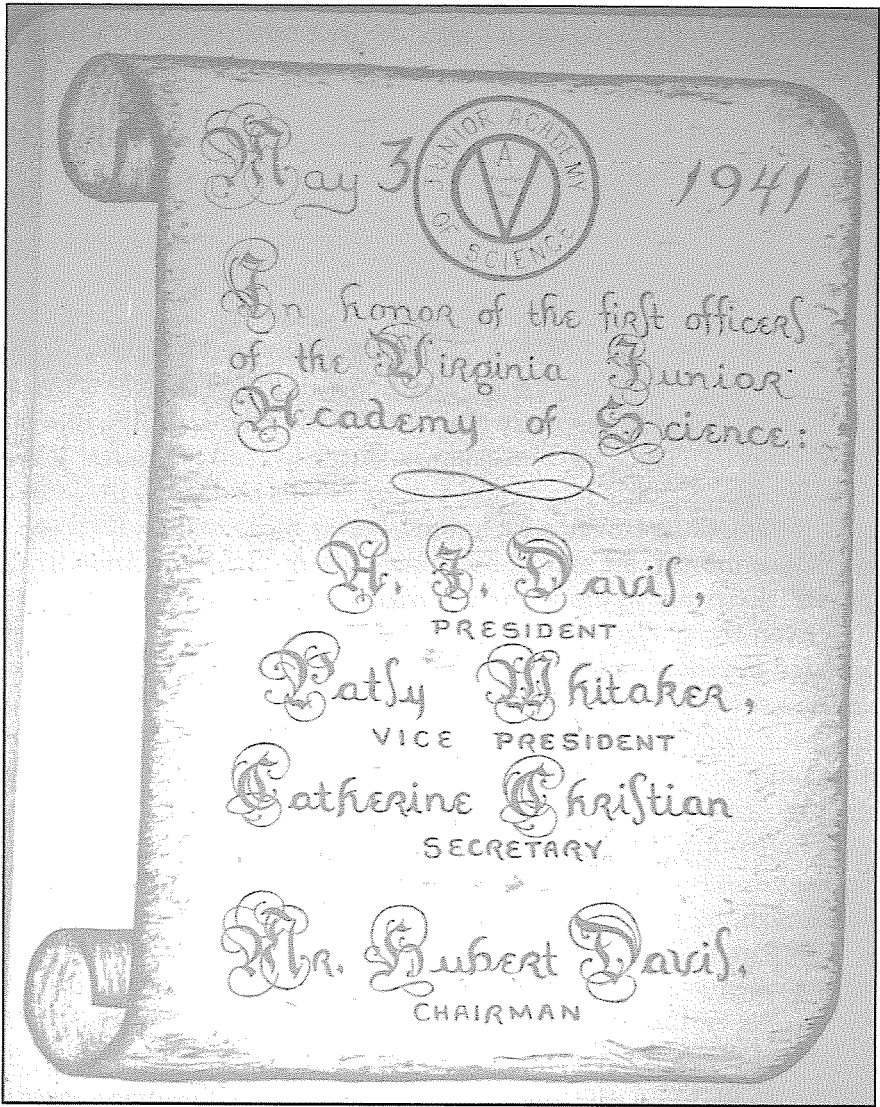 May 3 1941
JUNIOR ACADEMY
OF SCIENCE
V A
In honor of the first officers
of the Virginia Junior
Academy of Science:
A. J. Davis,
PRESIDENT
Patsy Whitaker,
VICE PRESIDENT
Catherine Christian
SECRETARY
Mr. Hubert Davis.
CHAIRMAN